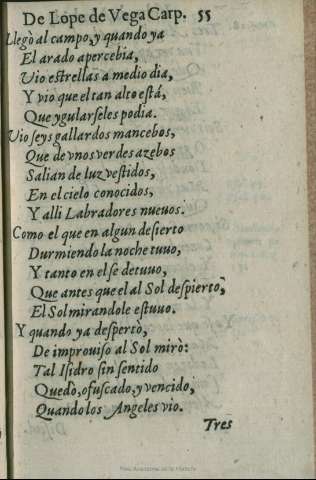 De Lope de Vega Carp. 55
Llegò al campo, y quando ya
El arado apercebia,
Vio estrellas a medio dia,
Y vio que el tan alto està,
Que ygularseles podia.
Vio seys gallardos mancebos,
Que de vnos verdes azebos
Salian de luz vestidos,
En el cielo conocidos,
Y alli Labradores nueuos.
Como el que en algun desierto
Durmiendo la noche tuuo,
Y tanto en el se detuuo,
Que antes que el al Sol despierto,
El Sol mirandole estuuo.
Y quando ya despertò,
De improuiso al Sol mirò:
Tal Isidro sin sentido
Quedò, ofuscado, y vencido,
Quando los Angeles vio.
Tres
Real Academia de la Historia